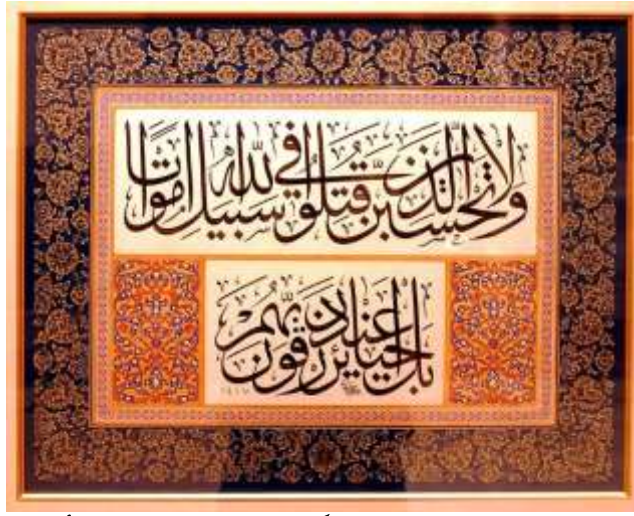 ولا تحسبن الذين قتلوا في سبيل الله امواتا
بل احياء عند ربهم يرزقون